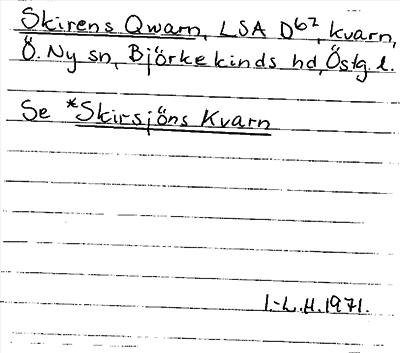 Skirens Qwarn, LSA D67, kvarn,
Ö. Ny sn, Björkekinds hd, Östg. l.
Se *Skirsjöns Kvarn
I.-L.H. 1971.